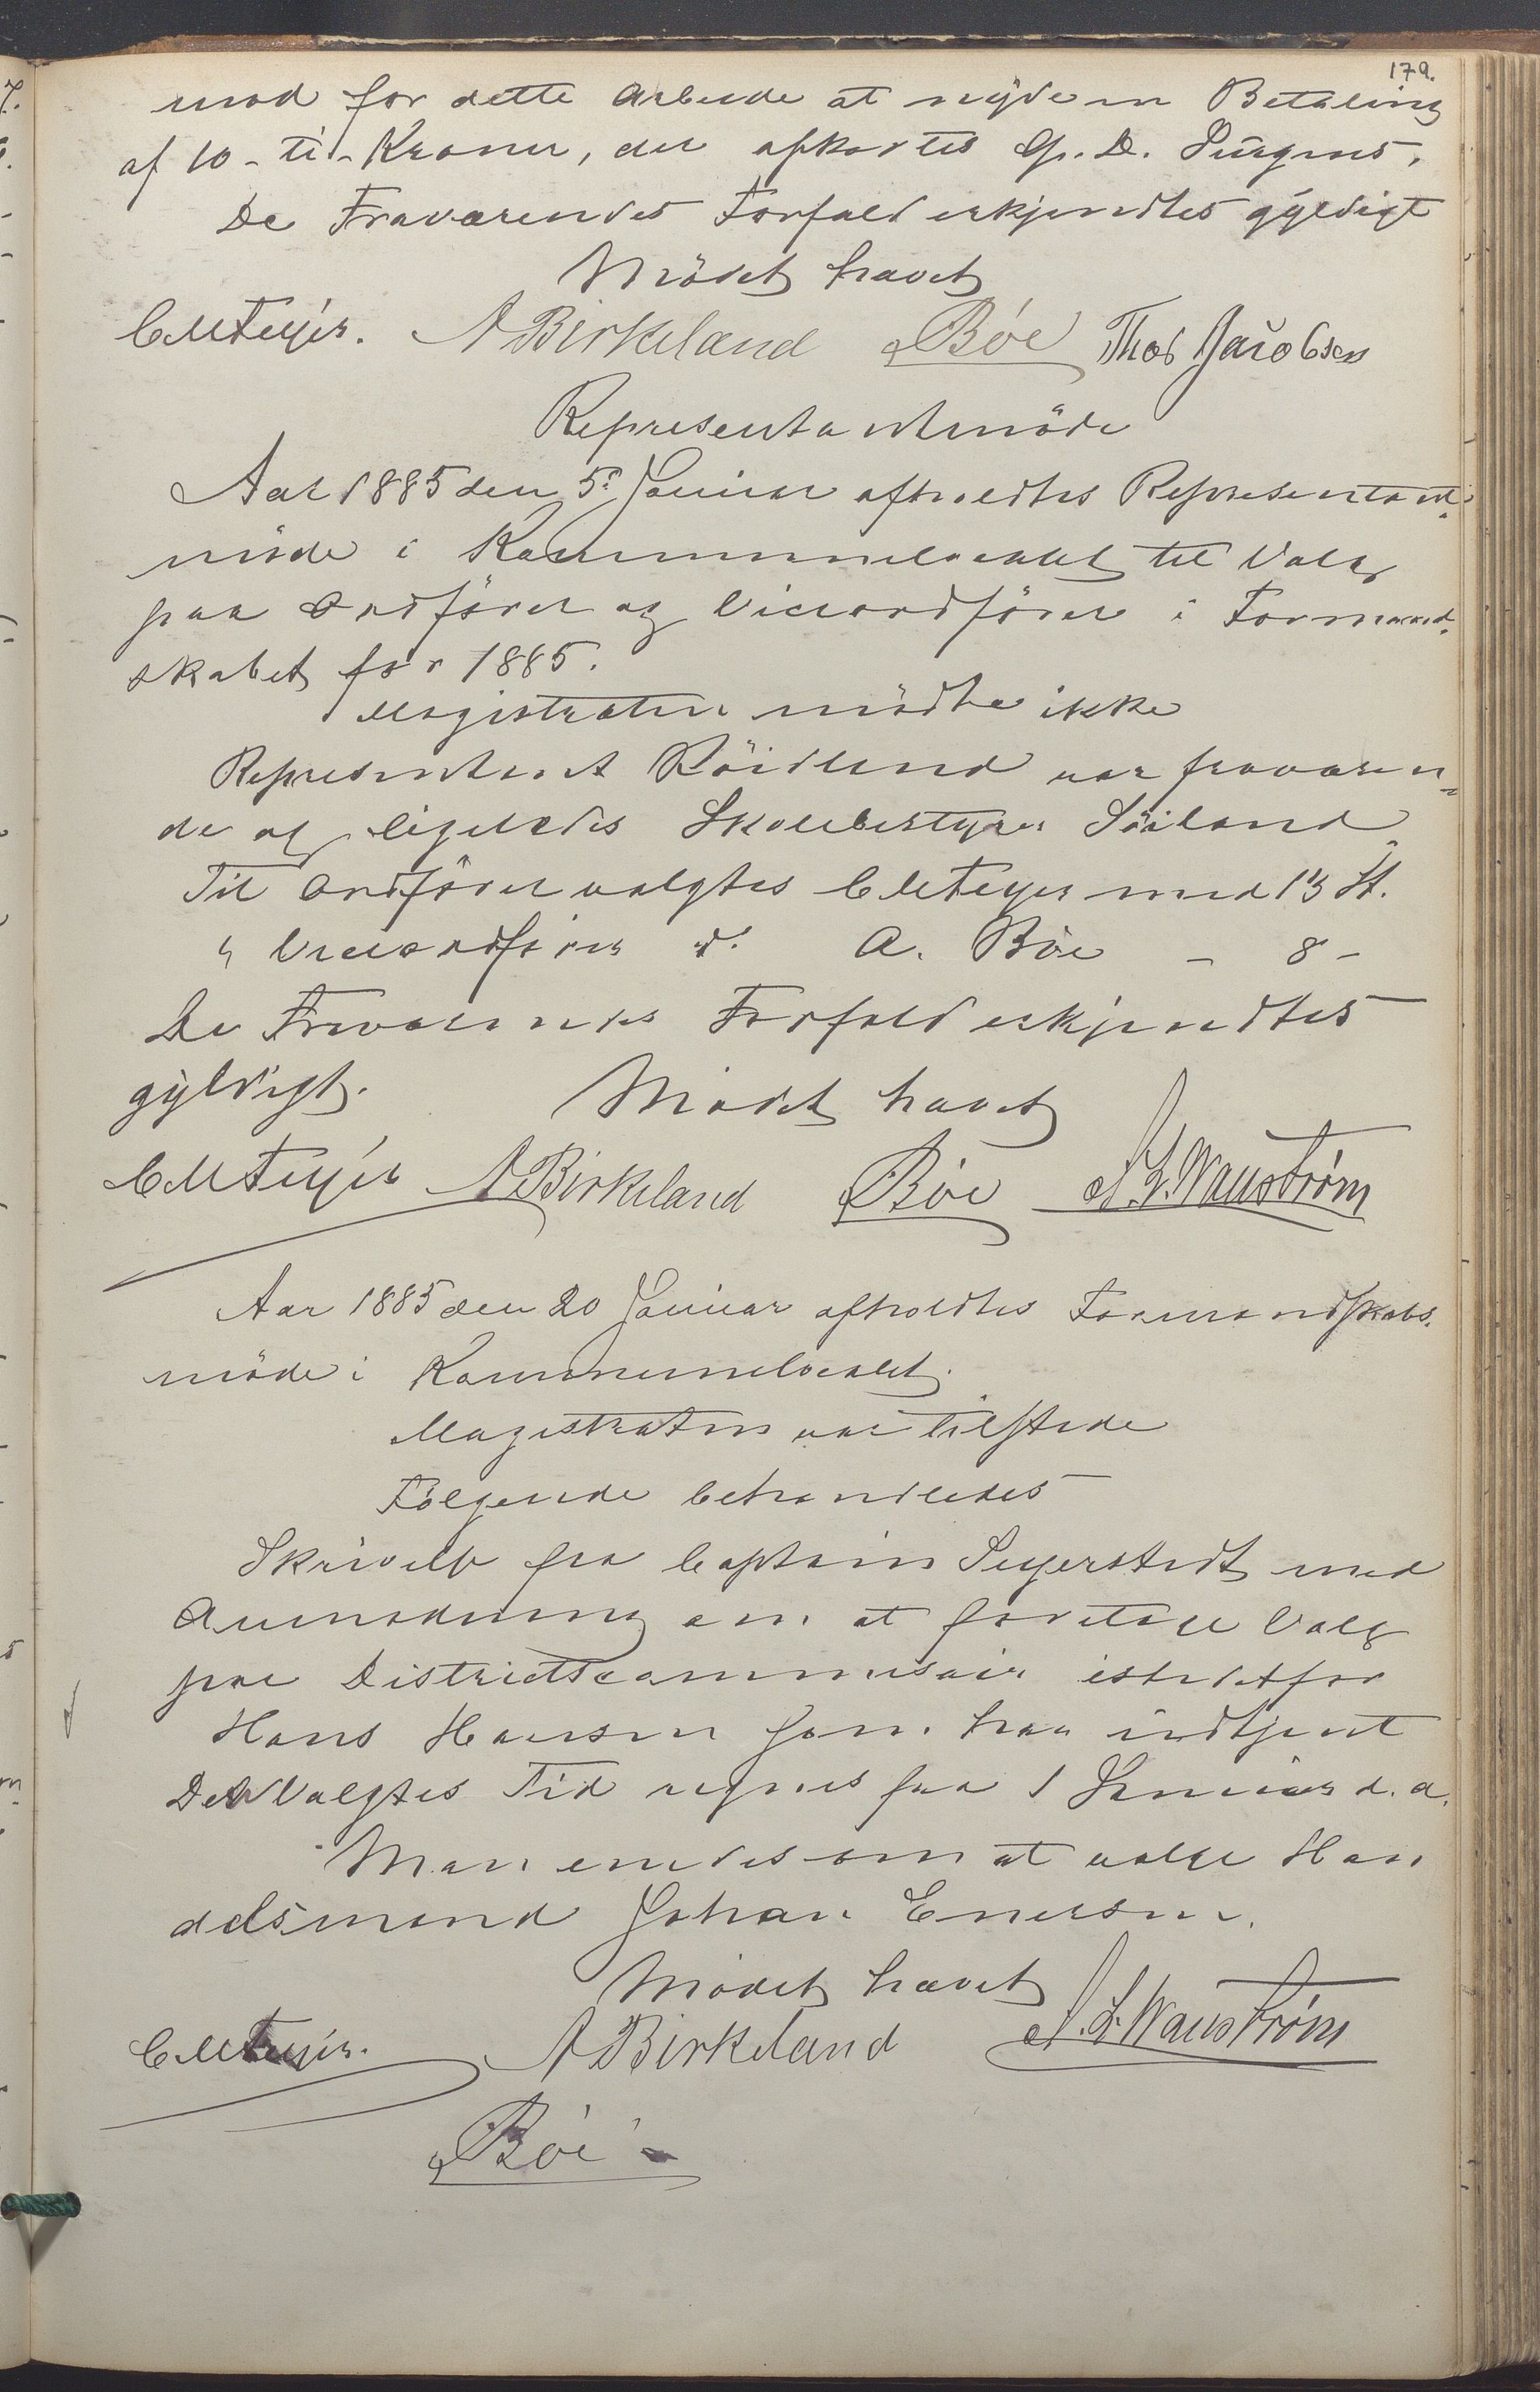 179.
mod for dette Arbeide at nyde en Betaling
af 10 - ti - Kroner, der afkortes G. D. Jürgens.
De Fraværendes Forfald erkjendtes gyldigt
Mödet hævet
C Meyer. A Birkeland Bóe Thos Jacobsen
Representantmöde
Aar 1885 den 5. Januar afholdtes Representant-
möde i Kommunelocalet til Valg
paa Ordförer og Viceordförer i Formand-
skabet for 1885.
Magistraten mödte ikke
Representant Röidland var fraværen-
de og ligeledes Skolebestyrer Söiland
Til Ordförer valgtes C Meyer med 13 St.
" Viceordförer d. A. Böe - 8 -
De Fraværendes Forfald erkjendtes
gyldigt.
Mödet hævet
C Meyer A Birkeland Bóe L. Wanström
Aar 1885 den 20 Januar afholdtes Formandskabs-
möde i Kommunelocalet.
Magistraten var tilstede
Fölgende behandledes
Skrivelse fra Captain Segerstedt med
Anmodning om at foretage Valg
paa Districtscommissair istedetfor
Hans Hansen som har udtjent
Den Valgtes Tid regnes fra 1 Januar d. a.
Man enedes om at vælge Han
delsmand Johan Enersen.
Mödet hævet
C Meyer. A Birkeland L. Wanström
Bóe